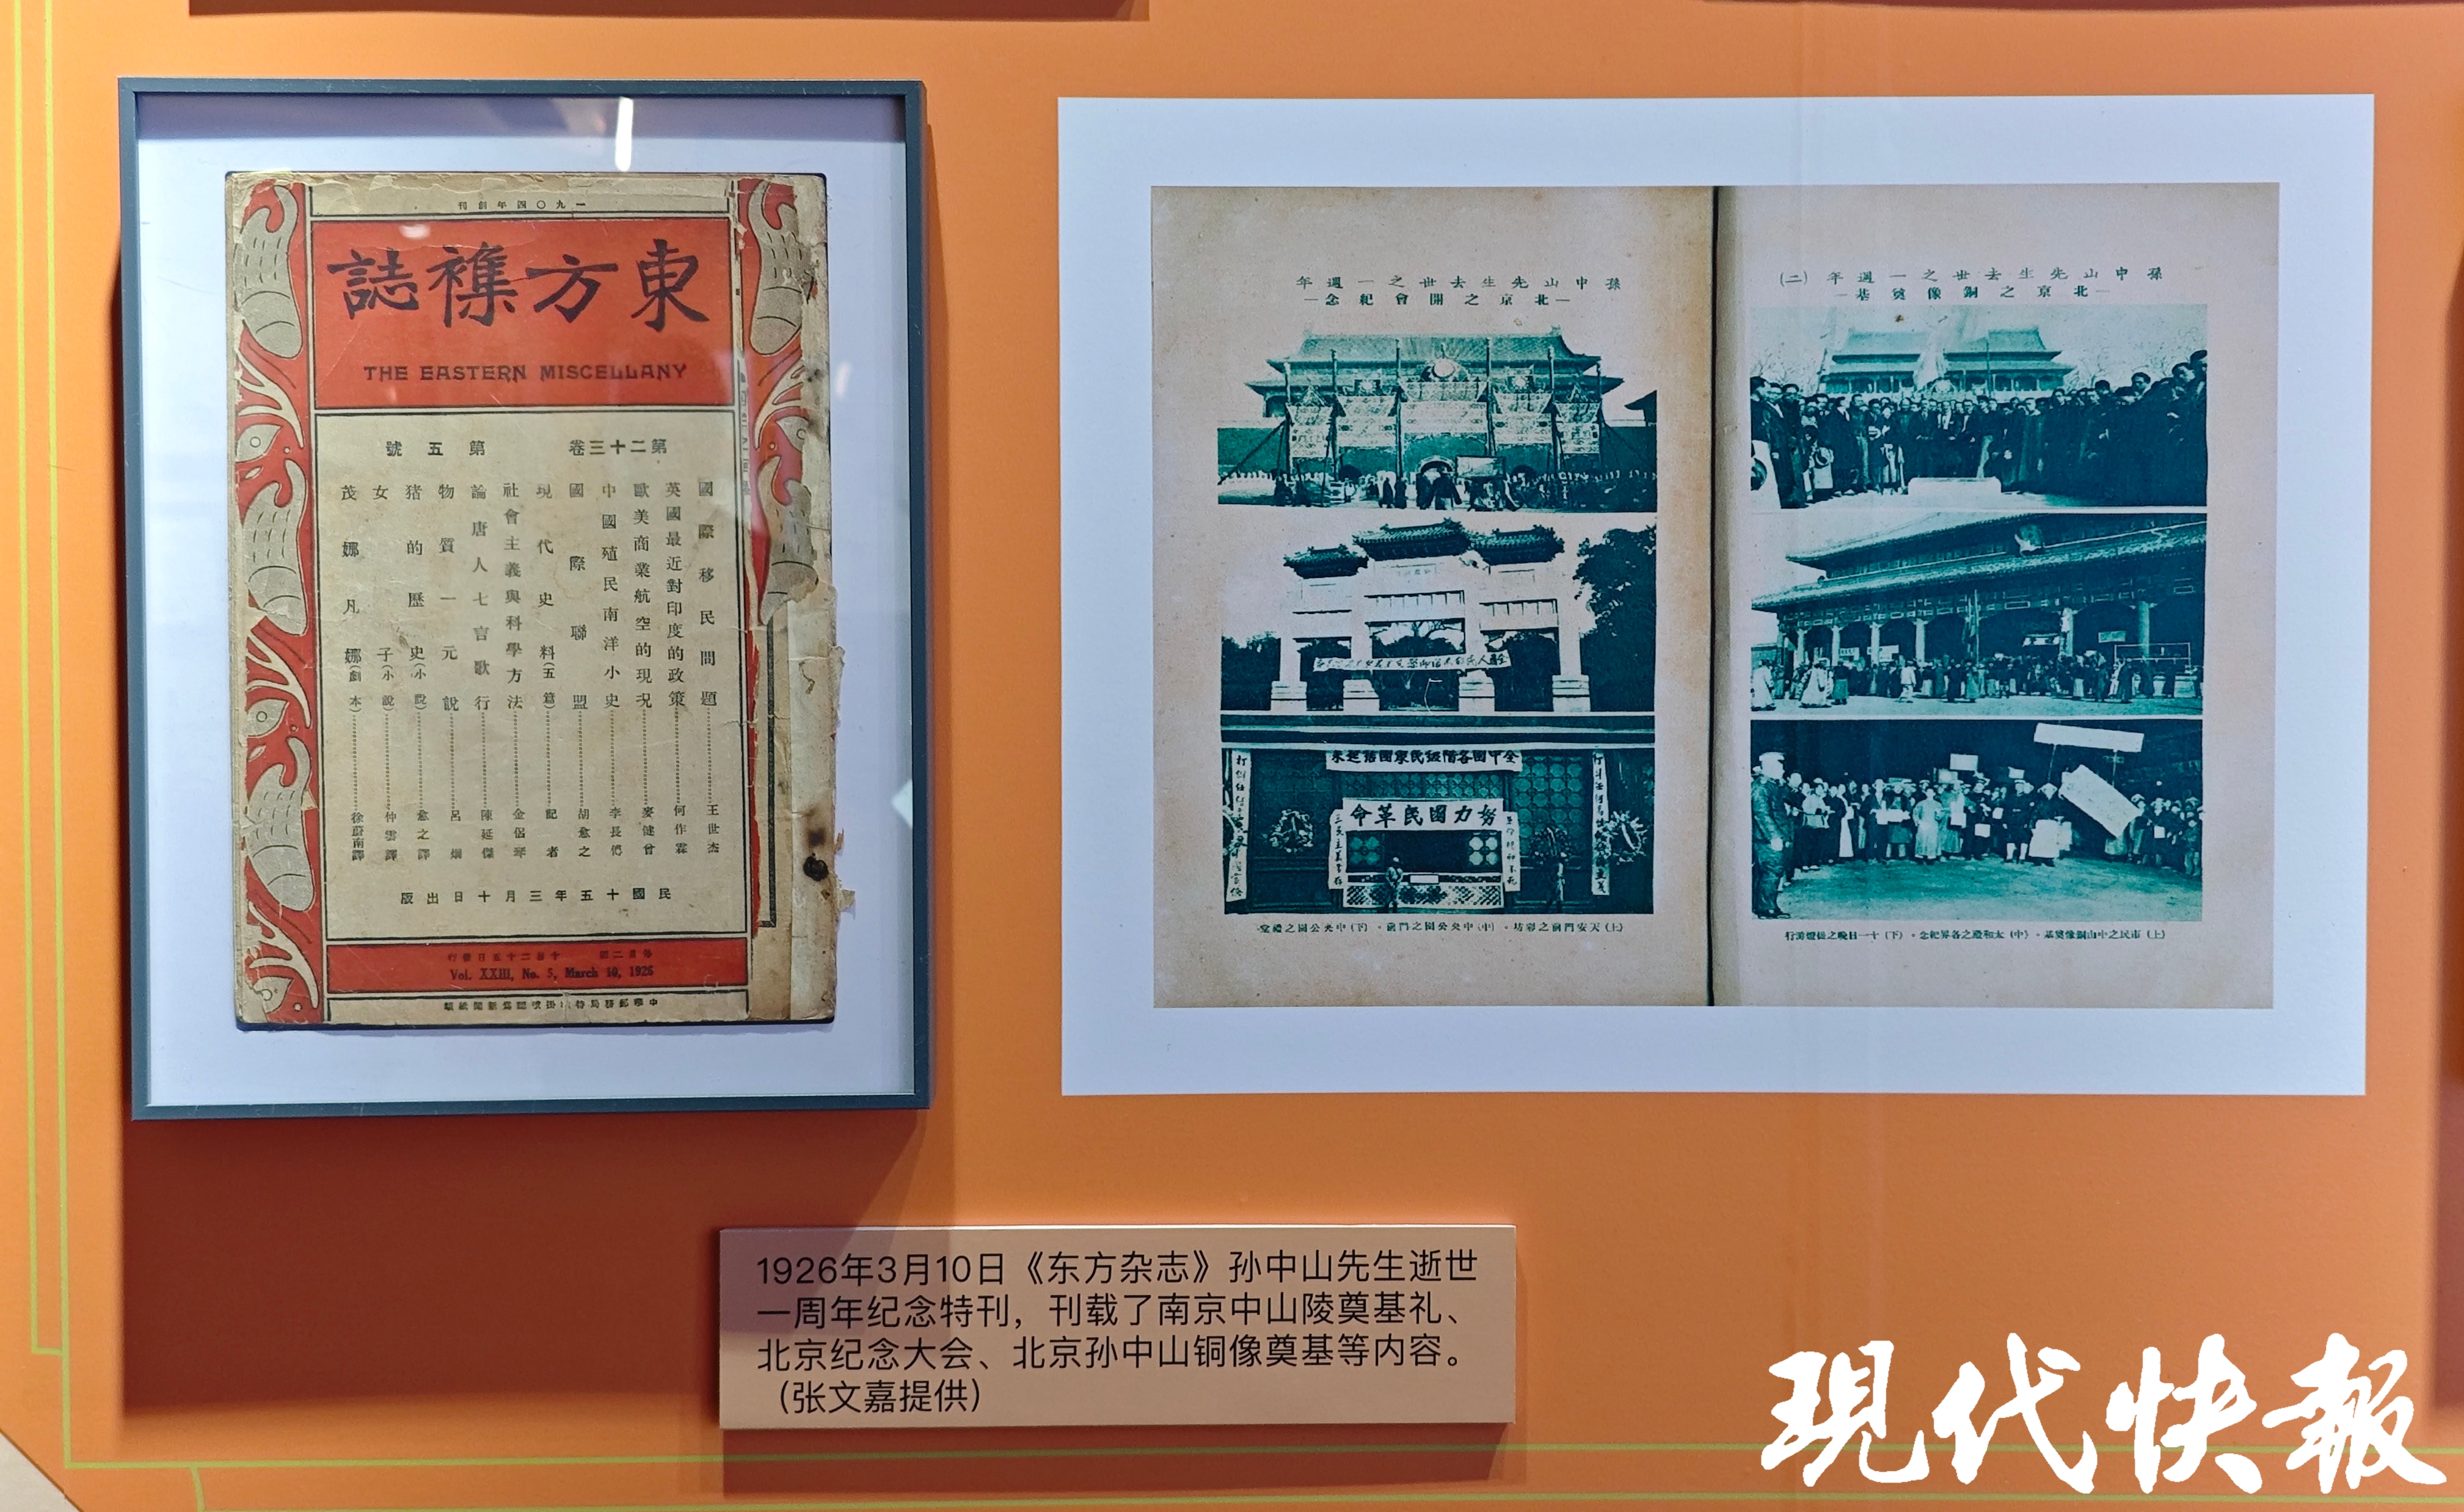 一九〇四年創刊
東方襍誌
THE EASTERN MISCELLANY
第二十三卷 第五號
國際移民問題 王世杰
英國最近對印度的政策 何作霖
歐美商業航空的現况 麥健曾
中國殖民南洋小史 李長傅
國際聯盟 胡愈之
現代史料(五篇) 記者
社會主義與科學方法 金侶琴
論唐人七言歌行 陳延傑
物質一元說 呂炯
猪的歷史(小說) 愈之譯
女子(小說) 仲雲譯
茂娜凡娜(劇本) 徐蔚南譯
民國十五年三月十日出版
Vol. XXIII, No. 5, March 10, 1926
孫中山先生去世之一週年
—北京之開會紀念—
全中國各階級民衆團結起來
努力國民革命
(上)天安門前之彩坊。(中)中央公園之門前。(下)中央公園之禮堂
孫中山先生去世之一週年(二)
—北京之銅像奠基—
(上)市民之中山銅像奠基。(中)太和殿之各界紀念。(下)十一日晚之提燈游行
1926年3月10日《东方杂志》孙中山先生逝世
一周年纪念特刊，刊载了南京中山陵奠基礼、
北京纪念大会、北京孙中山铜像奠基等内容。
（张文嘉提供）
現代快報